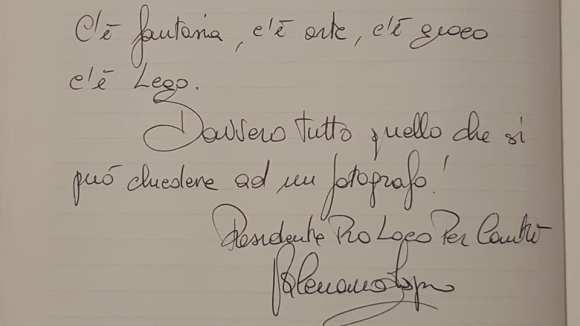 C'è fantasia, c'è arte, c'è gioco
c'è Lego.
Davvero tutto quello che si
può chiedere ad un fotografo!
Presidente Pro Loco Per Cantù